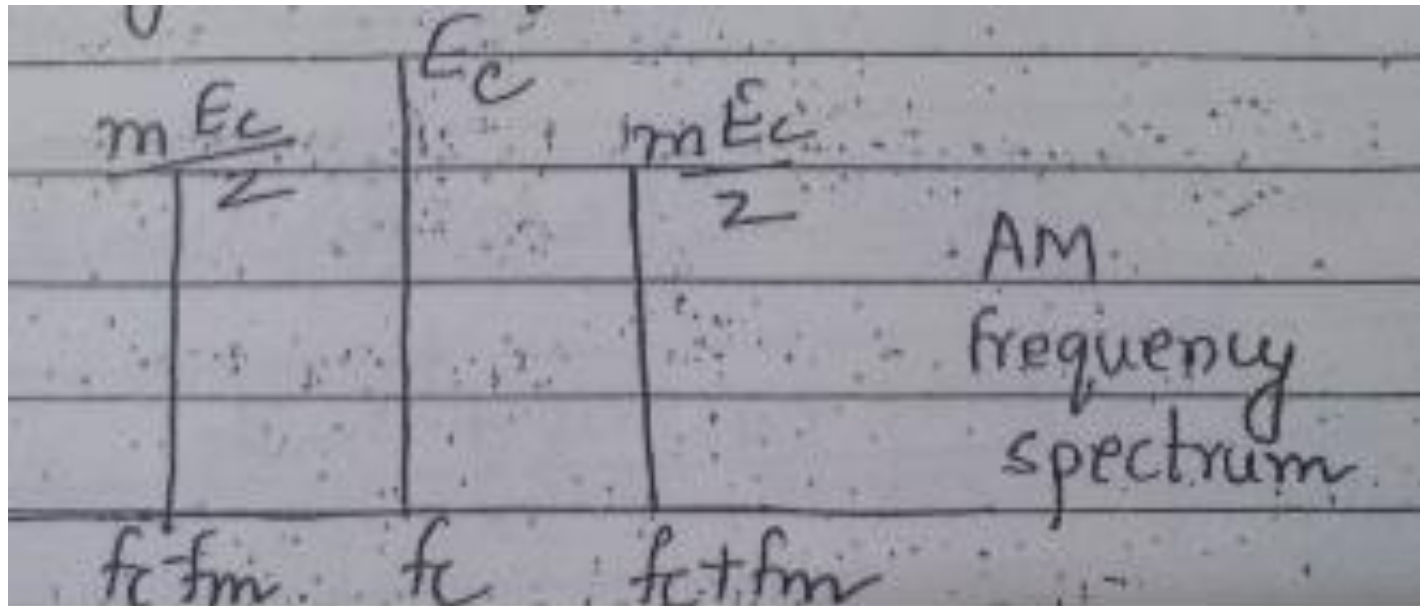 E_c
m E_c/2
m E_c/2
AM
frequency
spectrum
fc-fm
fc
fc+fm